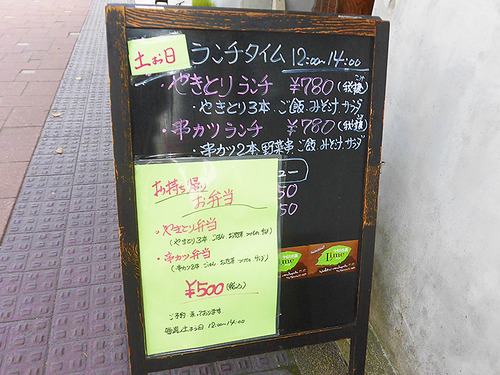 土お日 ランチタイム 12:00~14:00
・やきとりランチ ¥780(税抜)
・やきとり3本、ご飯、みそ汁、サラダ
・串カツランチ ¥780(税抜)
・串カツ2本、野菜串、ご飯、みそ汁、サラダ
ュー
50
50
お持ち帰り
お弁当
・やきとり弁当
(やきとり3本、ごはん、お惣菜、サラダ)
・串カツ弁当
(串カツ2本、ごはん、お惣菜、サラダ)
¥500(税込)
ご予約 承っております
毎週土お日 12:00~14:00
lime
Lime